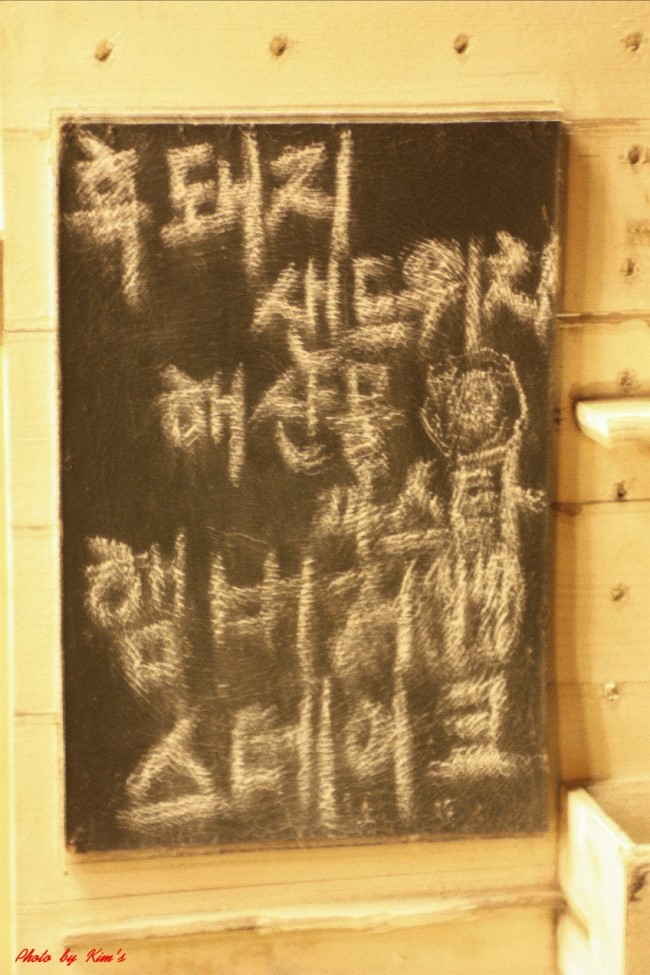 흑돼지
샌드위치
해산물
햄버거
스테이크
Photo by Kim's